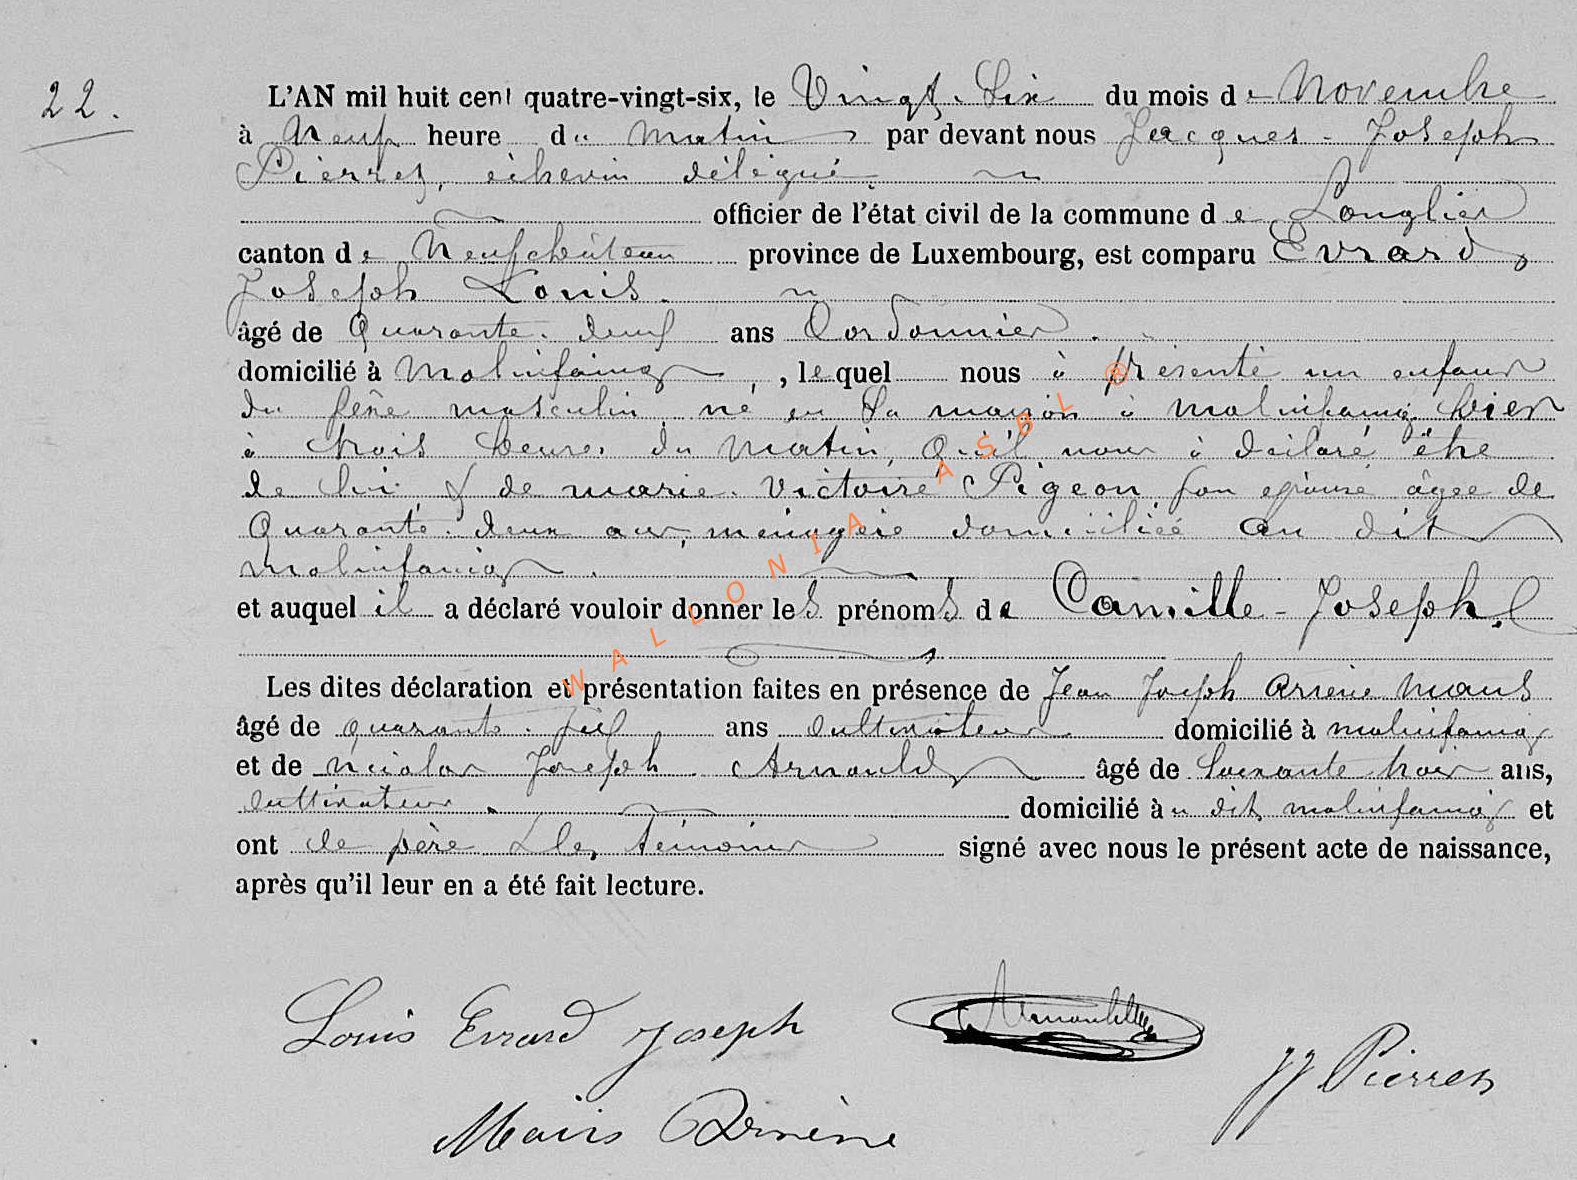 22.
L'AN mil huit cent quatre-vingt-six, le Vingt-Six du mois de Novembre
à Neuf heure du Matin par devant nous Jacques-Joseph
Pierret, échevin délégué
officier de l'état civil de la commune de Longlier
canton de Neufchâteau province de Luxembourg, est comparu Evrard
Joseph Louis.
âgé de Quarante-deux ans Cordonnier.
domicilié à Molinfaing, lequel nous à présenté un enfant
du sexe masculin né en sa maison à Molinfaing hier
à trois heures du Matin, qu'il nous à déclaré être
de lui & de marie-Victoire Pigeon son épouse âgée de
Quarante-deux ans, ménagère domiciliée au dit
Molinfaing.
et auquel il a déclaré vouloir donner les prénoms de Camille-Joseph.
Les dites déclaration et présentation faites en présence de Jean Joseph Arsène Maus
âgé de quarante- ans cultivateur domicilié à molinfaing
et de nicolas Joseph Arnould âgé de soixante trois ans,
cultivateur. domicilié au dit molinfaing et
ont le père & les témoins signé avec nous le présent acte de naissance,
après qu'il leur en a été fait lecture.
Louis Evrard Joseph
Arnould
JJ Pierret
Arsène
WALLONIA ASBL ®